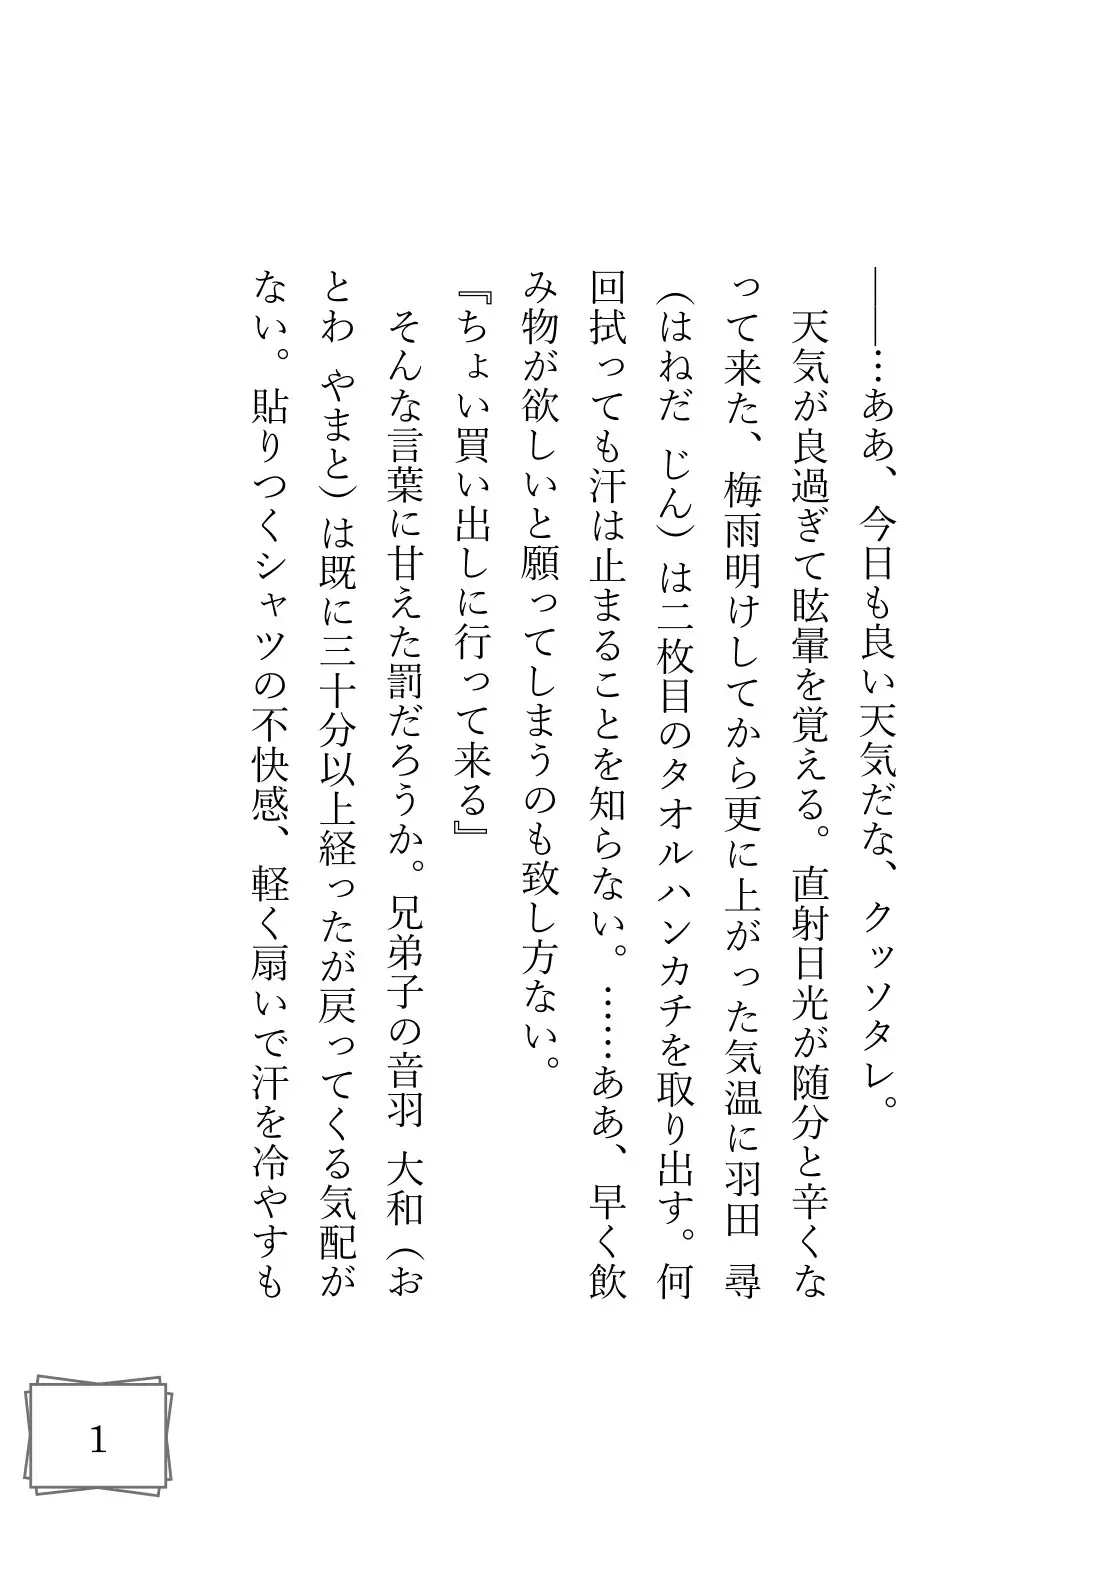 ――…ああ、今日も良い天気だな、クッソタレ。
　天気が良過ぎて眩暈を覚える。直射日光が随分と辛くな
って来た、梅雨明けしてから更に上がった気温に羽田　尋
（はねだ　じん）は二枚目のタオルハンカチを取り出す。何
回拭っても汗は止まることを知らない。……ああ、早く飲
み物が欲しいと願ってしまうのも致し方ない。
『ちょい買い出しに行って来る』
　そんな言葉に甘えた罰だろうか。兄弟子の音羽　大和（お
とわ　やまと）は既に三十分以上経ったが戻ってくる気配が
ない。貼りつくシャツの不快感、軽く扇いで汗を冷やすも
1